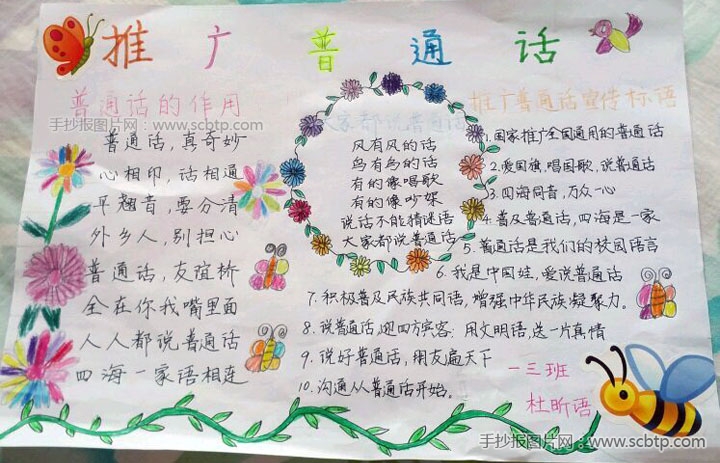 推广普通话
普通话的作用
普通话，真奇妙
心相印，话相通
平翘音，要分清
外乡人，别担心
普通话，友谊桥
全在你我嘴里面
人人都说普通话
四海一家语相连
大家都说普通话
风有风的话
鸟有鸟的话
有的像唱歌
有的像吵架
说话不能猜谜语
大家都说普通话
推广普通话宣传标语
1.国家推广全国通用的普通话
2.爱国旗，唱国歌，说普通话
3.四海同音，万众一心
4.普及普通话，四海是一家
5.普通话是我们的校园语言
6.我是中国娃，爱说普通话
7.积极普及民族共同语，增强中华民族凝聚力。
8.说普通话，迎四方宾客；用文明语，送一片真情
9.说好普通话，朋友遍天下
10.沟通从普通话开始。
一三班
杜昕语
手抄报图片网：www.scbtp.com
手抄报图片网：www.scbtp.com
手抄报图片网：www.scbtp.com